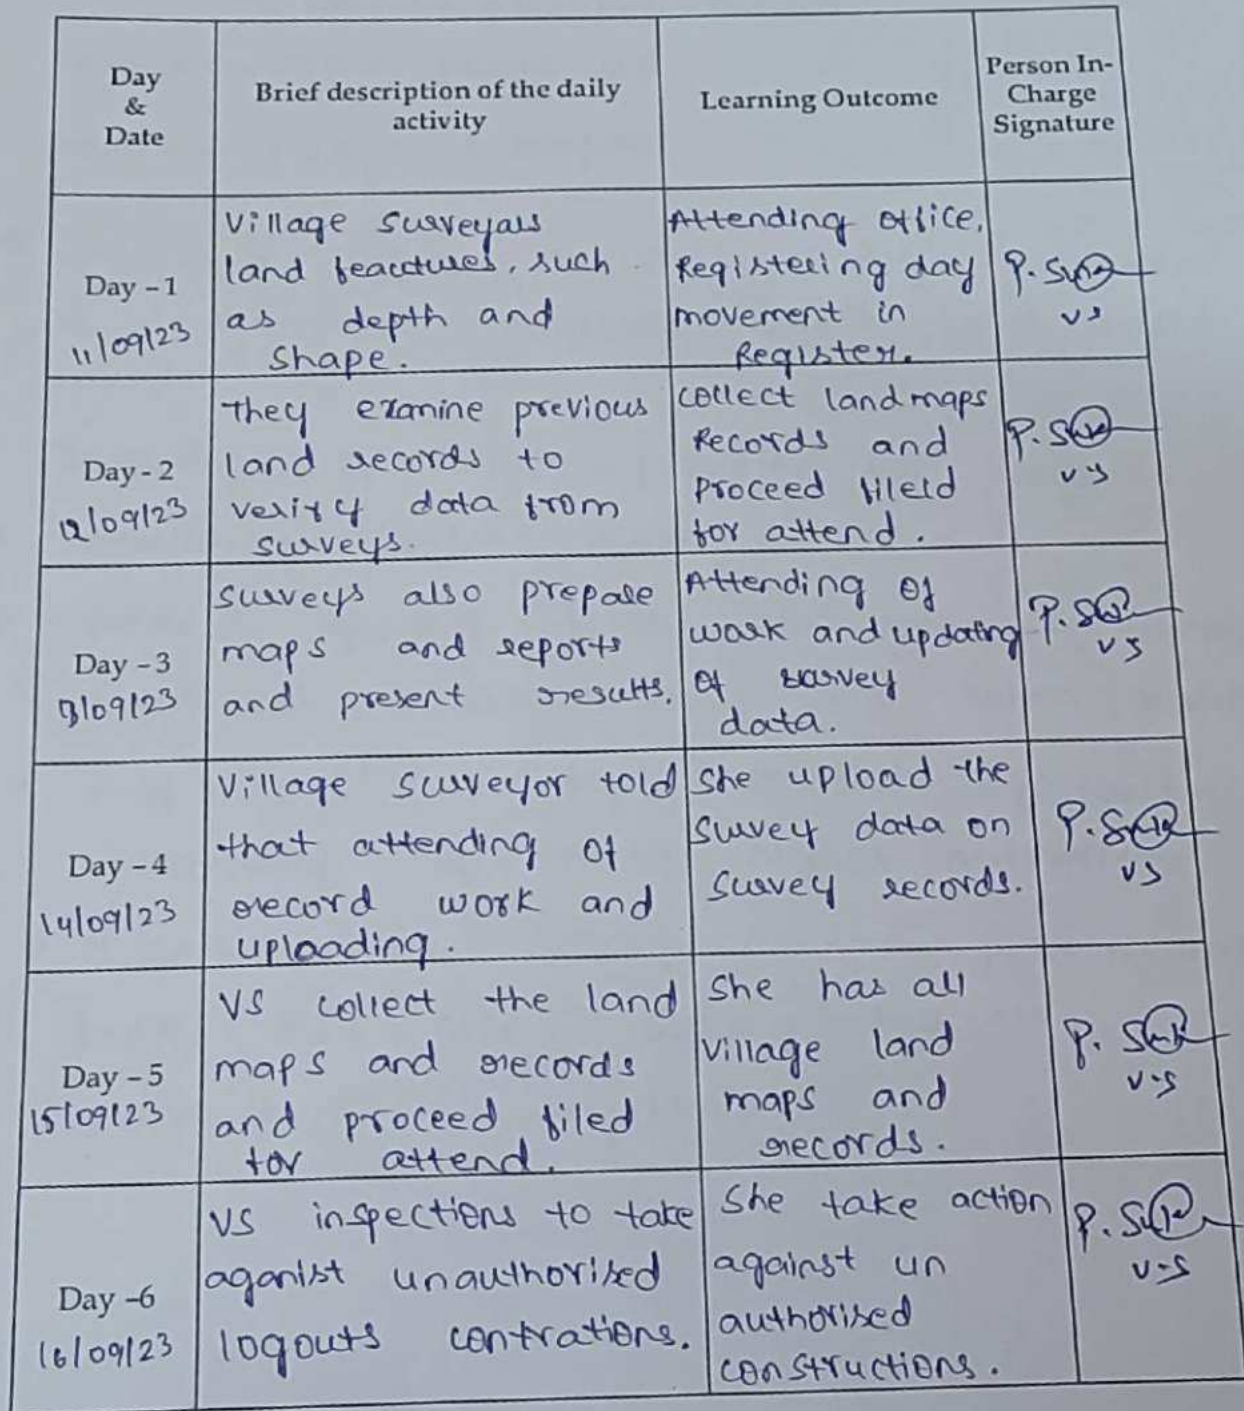 Day
&
Date
Brief description of the daily
activity
Learning Outcome
Person In-
Charge
Signature
Day - 1
11/09/23
Village surveyals
land feacutures, such
as depth and
shape.
Attending office,
Registering day
movement in
Register.
vs
Day - 2
12/09/23
they examine previous
land records to
verify data from
surveys.
collect land maps
Records and
proceed fileld
for attend.
vs
Day - 3
13/09/23
surveys also prepare
maps and reports
and present results.
Attending of
work and updating
of survey
data.
vs
Day - 4
14/09/23
Village surveyor told
that attending of
record work and
uploading.
She upload the
survey data on
survey records.
vs
Day - 5
15/09/23
VS collect the land
maps and records
and proceed filed
for attend.
She has all
village land
maps and
records.
v.s
Day -6
16/09/23
VS inspections to take
aganist unauthorised
logouts contrations.
She take action
against un
authorised
constructions.
v.s